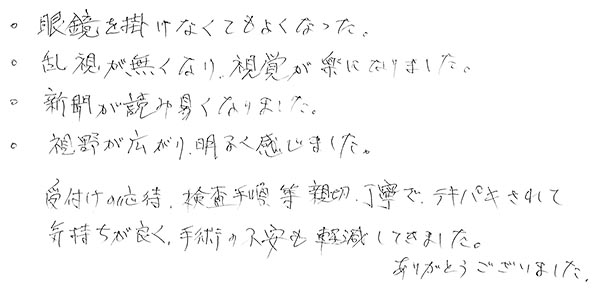 。眼鏡を掛けなくてもよくなった。
。乱視が無くなり、視覚が楽になりました。
。新聞が読み易くなりました。
。視野が広がり、明るく感じました。
受付けの応待、検査手順等親切、丁寧で、テキパキされて
気持ちが良く、手術の不安も軽減してきました。
ありがとうございました。